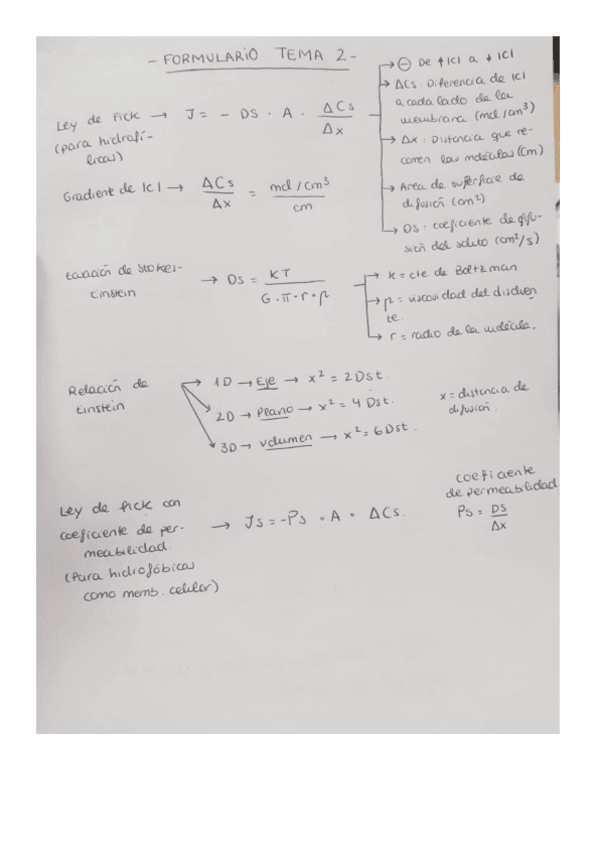 - FORMULARIO TEMA 2 -
Ley de Fick → J = - Ds · A · ΔCs / Δx
(para hidrofí-
licas)
→ ⊖ De ↑ |C| a ↓ |C|
→ ΔCs: Diferencia de |C|
a cada lado de la
membrana (mol/cm³)
→ Δx: Distancia que re-
corren las moléculas (cm)
→ Area de superficie de
difusión (cm²)
→ Ds: coeficiente de difu-
sión del soluto (cm²/s)
Gradiente de |C| → ΔCs / Δx = mol/cm³ / cm
Ecuación de Stokes-
Einstein
→ Ds = KT / 6·π·r·μ
→ k = cte de Boltzman
→ μ = viscosidad del disolven
te.
→ r = radio de la molécula.
Relación de
Einstein
→ 1D → Eje → x² = 2Dst.
2D → Plano → x² = 4Dst.
3D → volumen → x² = 6Dst.
x = distancia de
difusión.
Ley de fick con
coeficiente de per-
meabilidad
(Para hidrofóbicas
como memb. celular)
→ Js = -Ps · A · ΔCs.
coeficiente
de permeabilidad
Ps = Ds / Δx